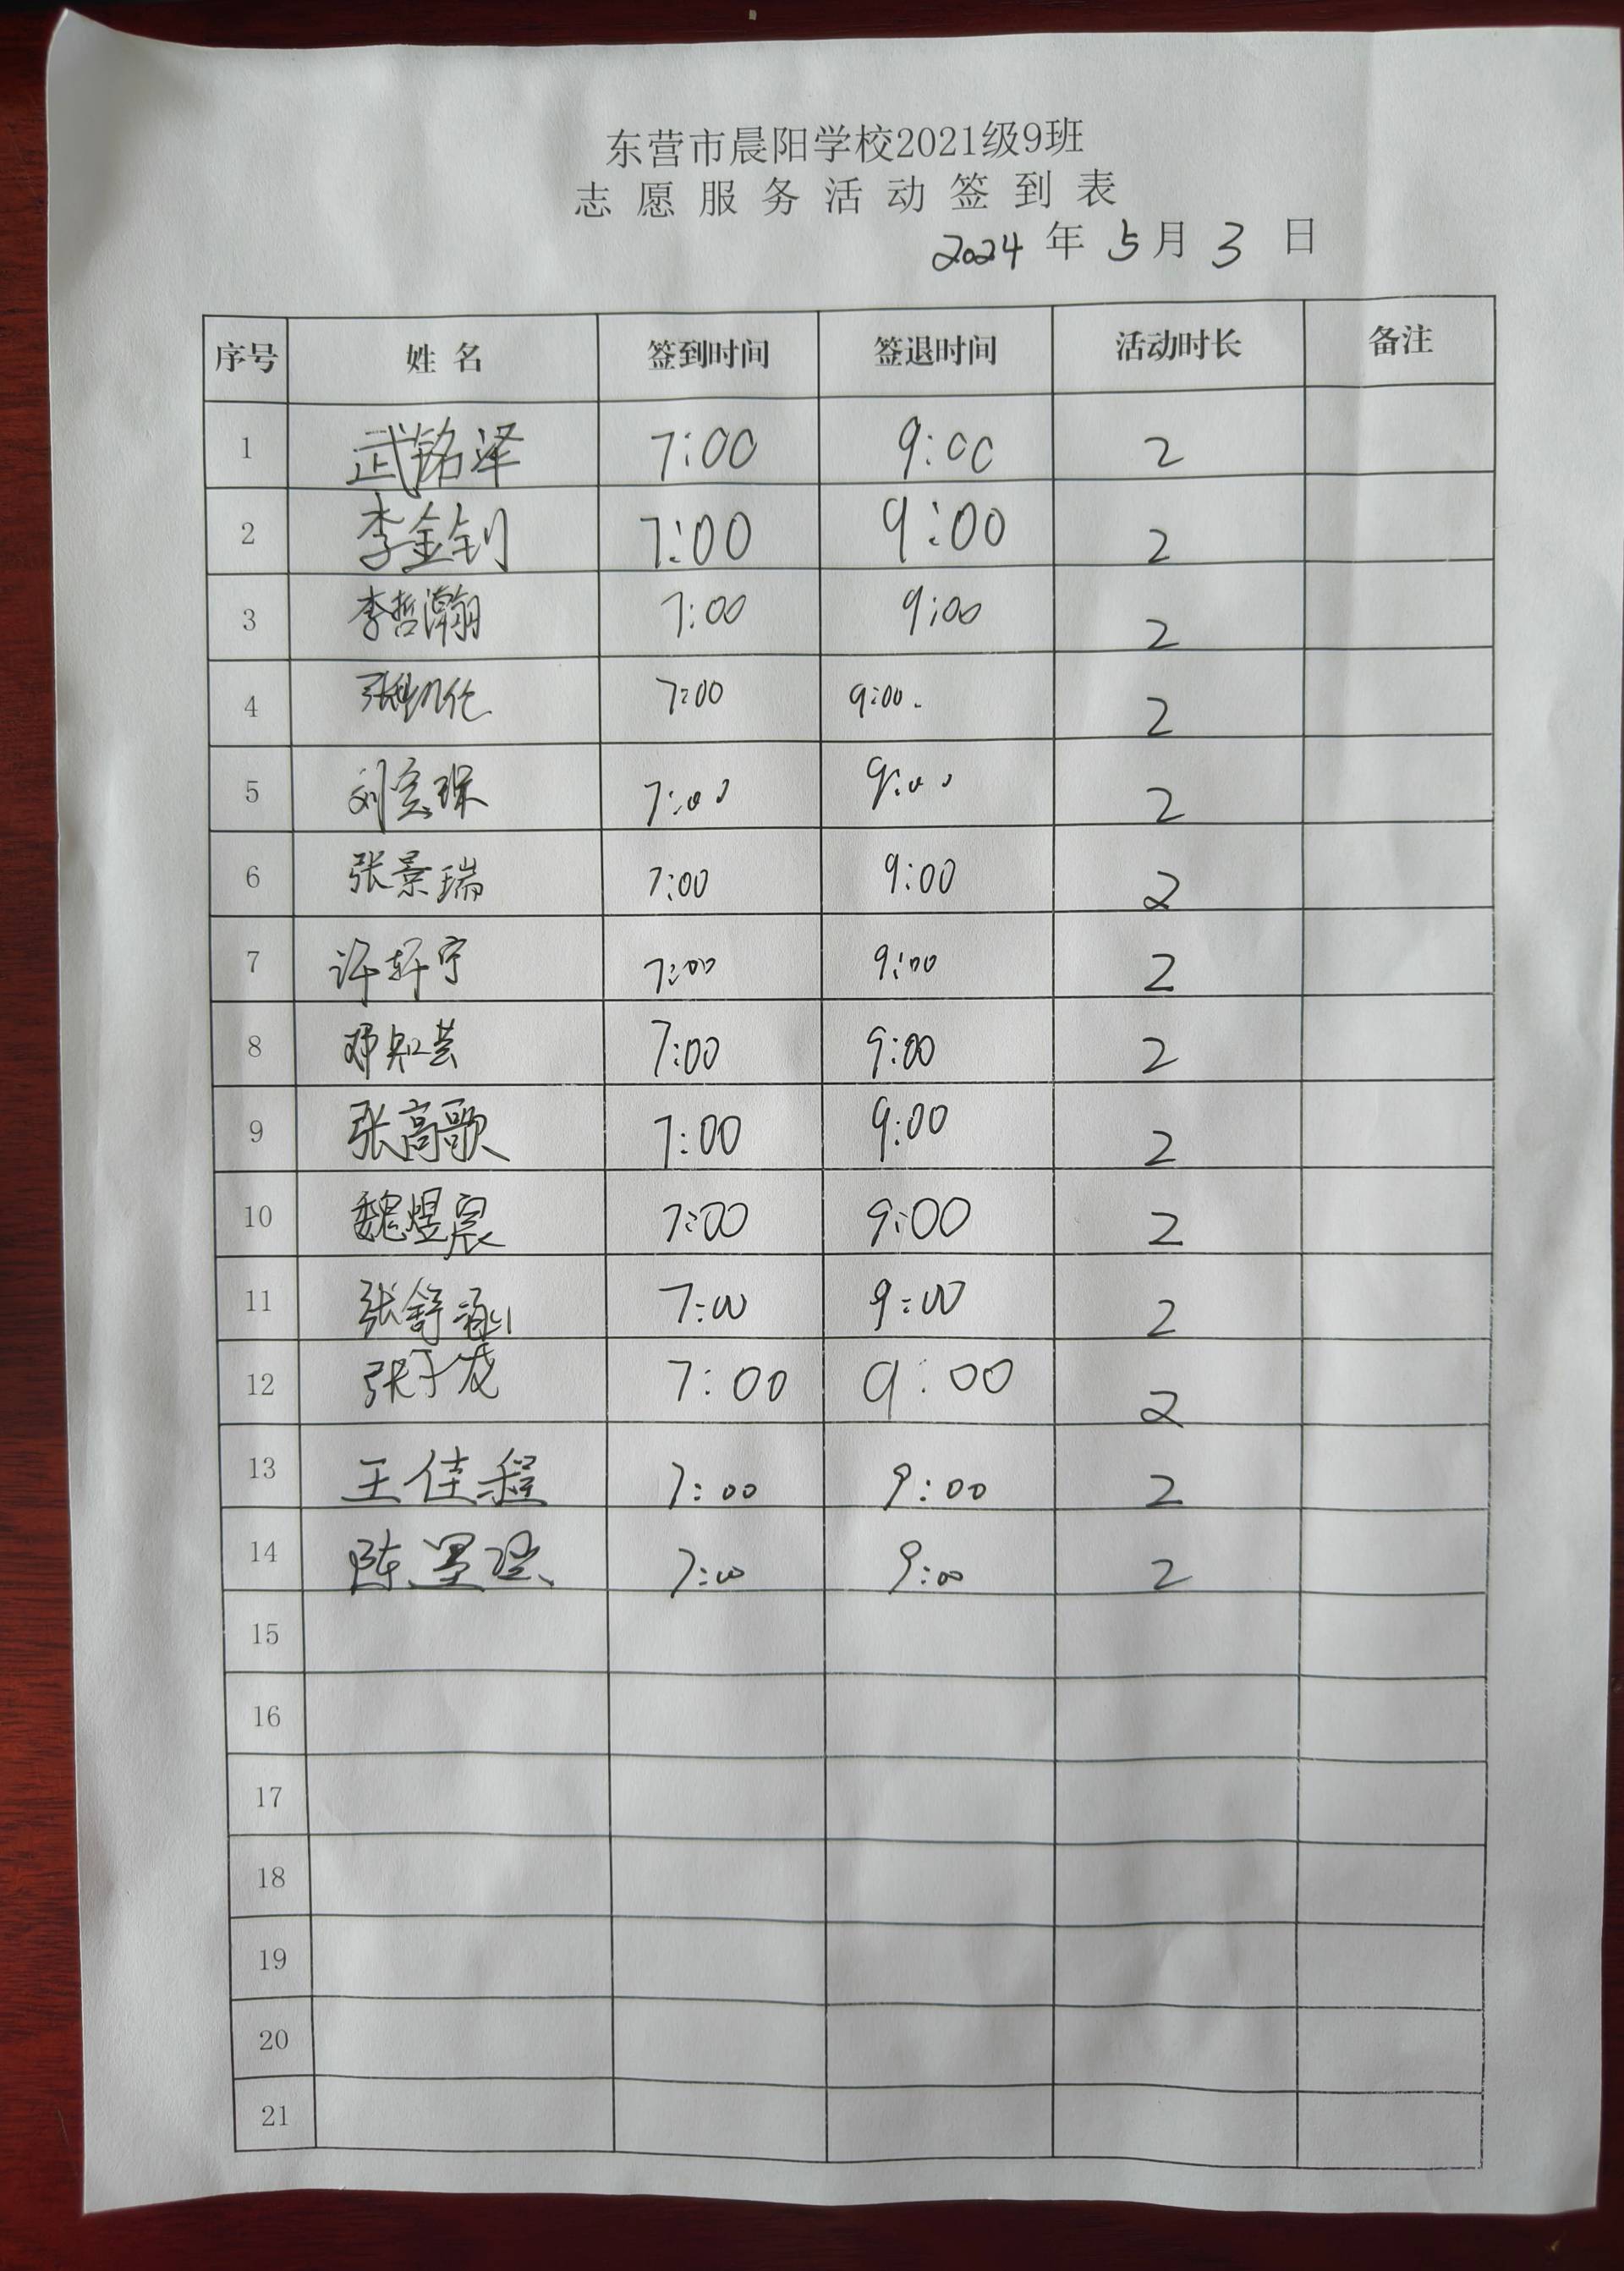 东营市晨阳学校2021级9班
志愿服务活动签到表
2024 年 5 月 3 日
序号 姓名 签到时间 签退时间 活动时长 备注
1 武铭泽 7:00 9:00 2
2 李金钊 7:00 9:00 2
3 李哲瀚 7:00 9:00 2
4 张凯伦 7:00 9:00. 2
5 刘 7:00 9:00 2
6 张景瑞 7:00 9:00 2
7 许轩宁 7:00 9:00 2
8 邓知芸 7:00 9:00 2
9 张高歌 7:00 9:00 2
10 魏煜宸 7:00 9:00 2
11 张舒涵 7:00 9:00 2
12 张子茂 7:00 9:00 2
13 王佳程 7:00 9:00 2
14 陈墨 7:00 9:00 2
15
16
17
18
19
20
21